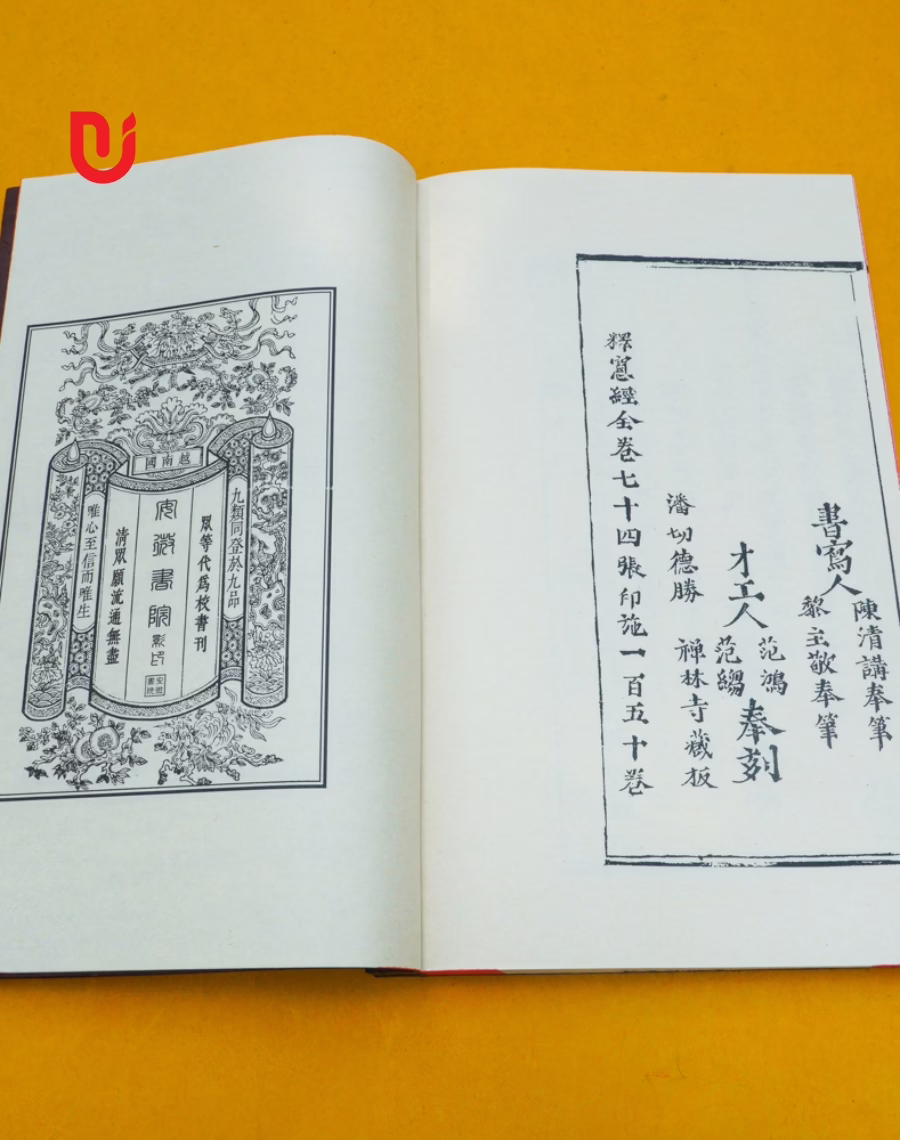 書寫人
陳清講奉筆
黎主敬奉筆
才工人
范鴻
范縐
奉刻
潘切德勝
禅林寺藏板
釋經全卷七十四張印施一百五十卷
越南國
九類同登於九品
眾等代爲枚書刊
書院影印
清眾願流通無盡
唯心至信而唯生